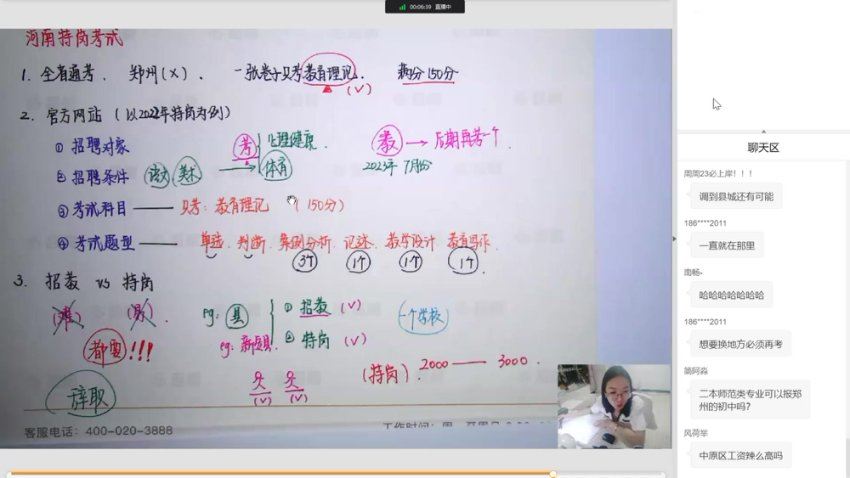 00:06:19 直播中
河南特岗考试
1. 全省通考、郑州(×)、一张卷子只考教育理论、满分150分
(√)
2. 官方网站 (以2022年特岗为例)
① 招聘对象
考 心理健康、
教 → 后期再考一个、
② 招聘条件 语文 美术 → 体育
2023年 7月份
③ 考试科目 —— 只考:教育理论 (150分)
④ 考试题型 —— 单选、判断、案例分析、论述、教学设计、教育写作、
3个 1个 1个 1个
3. 招教 vs 特岗
(难) (易)
eg: 县 ① 招教 (√)
② 特岗 (√)
一个学校
都要!!!
eg: 新
(√) (√)
(特岗)、2000 —— 3000、
客服电话:400-020-3888
聊天区
周周23必上岸!!!
调到县城还有可能
186****2011
一直就在那里
南畅-
哈哈哈哈哈哈哈
186****2011
想要换地方必须再考
简阿淼
二本师范类专业可以报郑
州的初中吗?
风荷举
中原区工资辣么高吗